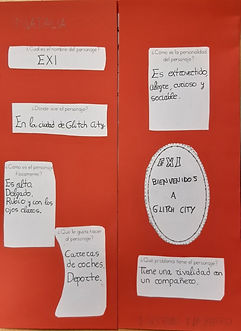 ¿Cuál es el nombre del personaje?
EXI
¿Dónde vive el personaje?
En la ciudad de Glitch City.
¿Cómo es el personaje
físicamente?
Es alto,
Delgado,
Rubio y con los
ojos claros.
¿Qué le gusta hacer
al personaje?
Carreras
de coches,
Deporte.
¿Cómo es la personalidad
del personaje?
Es extrovertido,
alegre, curioso y
sociable.
EXI
BIENVENIDOS
A
GLITCH CITY
¿Qué problema tiene el personaje?
Tiene una rivalidad con
un compañero.